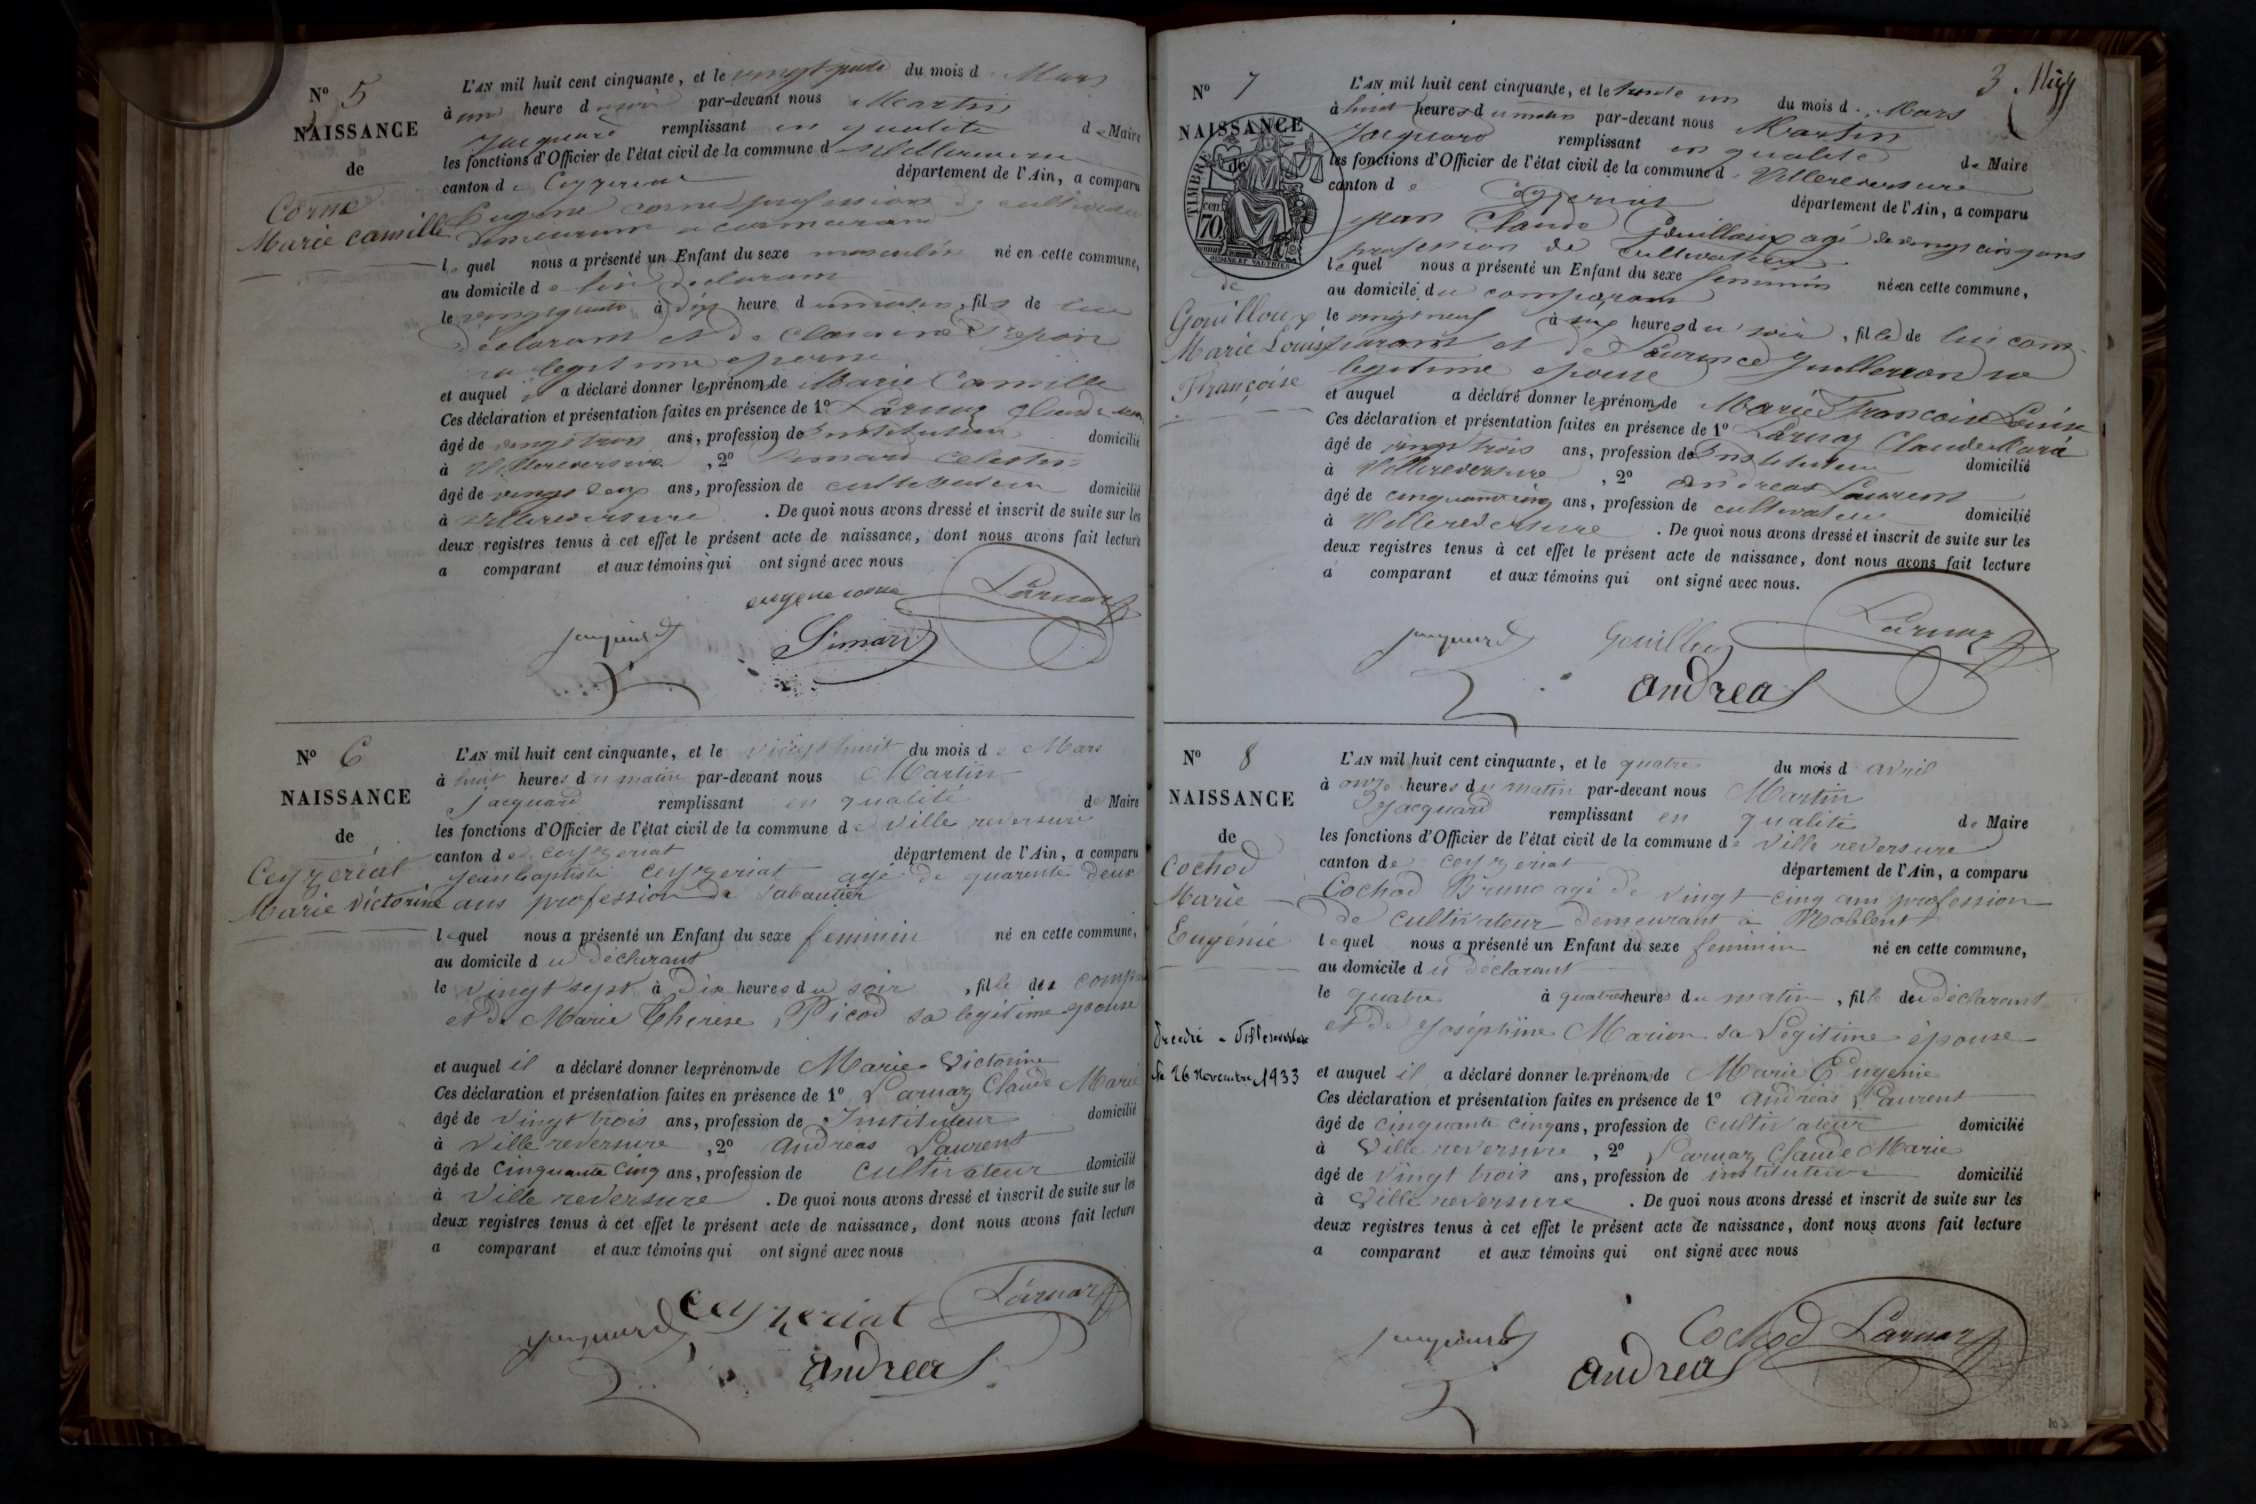 N° 5
NAISSANCE
de
Corne
Marie Camille
L'AN mil huit cent cinquante, et le du mois d Mars
à une heure d par-devant nous Martin
Jacquard remplissant en qualité de Maire
les fonctions d'Officier de l'état civil de la commune d Villereversure
canton de Ceyzeriat département de l'Ain, a comparu
Eugène Corne profession de cultivateur
demeurant a
lequel nous a présenté un Enfant du sexe masculin né en cette commune,
au domicile de lui déclarant
le à dix heure du matin, fils de lui
déclarant et de
sa legitime epouse
et auquel il a déclaré donner les prénoms de Marie Camille
Ces déclaration et présentation faites en présence de 1° Larnaz Claude
âgé de vingt trois ans, profession de Instituteur domicilié
à Villereversure, 2° Simard Celestin
âgé de vingt deux ans, profession de cultivateur domicilié
à Villereversure. De quoi nous avons dressé et inscrit de suite sur les
deux registres tenus à cet effet le présent acte de naissance, dont nous avons fait lecture
a comparant et aux témoins qui ont signé avec nous
eugene corne Larnaz
Jacquard Simard
N° 6
NAISSANCE
de
Ceyzeriat
Marie Victorine
L'AN mil huit cent cinquante, et le vingt huit du mois de Mars
à huit heures du matin par-devant nous Martin
Jacquard remplissant en qualité de Maire
les fonctions d'Officier de l'état civil de la commune de Ville reversure
canton de ceyzeriat département de l'Ain, a comparu
Jean baptiste Ceyzeriat agé de quarente deux
ans profession de Sabautier
lequel nous a présenté un Enfant du sexe feminin né en cette commune,
au domicile du déclarant
le vingt sept à Dix heures du soir, fille des
et de Marie Therèse Picod sa legitime epouse
et auquel il a déclaré donner les prénoms de Marie Victorine
Ces déclaration et présentation faites en présence de 1° Larnaz Claude Marie
âgé de vingt trois ans, profession de Instituteur domicilié
à Ville reversure, 2° Andreas Laurent
âgé de Cinquante Cinq ans, profession de cultivateur domicilié
à Ville reversure. De quoi nous avons dressé et inscrit de suite sur les
deux registres tenus à cet effet le présent acte de naissance, dont nous avons fait lecture
a comparant et aux témoins qui ont signé avec nous
Ceyzeriat Larnaz
Jacquard andreas
3
N° 7
NAISSANCE
de
TIMBRE
70
de
Gouilloux
Marie Louise
Françoise
L'AN mil huit cent cinquante, et le trente un du mois de Mars
à huit heures du matin par-devant nous Martin
Jacquard remplissant en qualité de Maire
les fonctions d'Officier de l'état civil de la commune de Villereversure
canton de Ceyzeriat département de l'Ain, a comparu
jean Claude Gouilloux agé de vingt cinq ans
profession de Cultivateur
lequel nous a présenté un Enfant du sexe feminin né en cette commune,
au domicile du comparant
le vingt neuf à six heures du soir, fille de lui com
parant et de Laurence Guillermon sa
legitime epouse
et auquel a déclaré donner les prénoms de Marie Françoise Louise
Ces déclaration et présentation faites en présence de 1° Larnaz Claude Marie
âgé de vingt trois ans, profession de Instituteur domicilié
à Villereversure, 2° andreas Laurent
âgé de cinquante cinq ans, profession de cultivateur domicilié
à Villereversure. De quoi nous avons dressé et inscrit de suite sur les
deux registres tenus à cet effet le présent acte de naissance, dont nous avons fait lecture
a comparant et aux témoins qui ont signé avec nous.
Jacquard Larnaz
andreas
N° 8
NAISSANCE
de
Cochod
Marie
Eugénie
L'AN mil huit cent cinquante, et le quatre du mois d avril
à onze heures du matin par-devant nous Martin
Jacquard remplissant en qualité de Maire
les fonctions d'Officier de l'état civil de la commune de Ville reversure
canton de ceyzeriat département de l'Ain, a comparu
Cochod Bruno agé de vingt cinq ans profession
de cultivateur demeurant à
lequel nous a présenté un Enfant du sexe feminin né en cette commune,
au domicile du déclarant
le quatre à quatre heures du matin, fille du déclarant
et de Joséphine Marion sa Légitime épouse
Décédée à Villereversure
le 26 Novembre 1933
et auquel il a déclaré donner les prénoms de Marie Eugenie
Ces déclaration et présentation faites en présence de 1° Andréas Laurent
âgé de cinquante cinq ans, profession de cultivateur domicilié
à Ville reversure, 2° Larnaz Claude Marie
âgé de vingt trois ans, profession de instituteur domicilié
à Ville reversure. De quoi nous avons dressé et inscrit de suite sur les
deux registres tenus à cet effet le présent acte de naissance, dont nous avons fait lecture
a comparant et aux témoins qui ont signé avec nous
Jacquard Cochod Larnaz
andreas